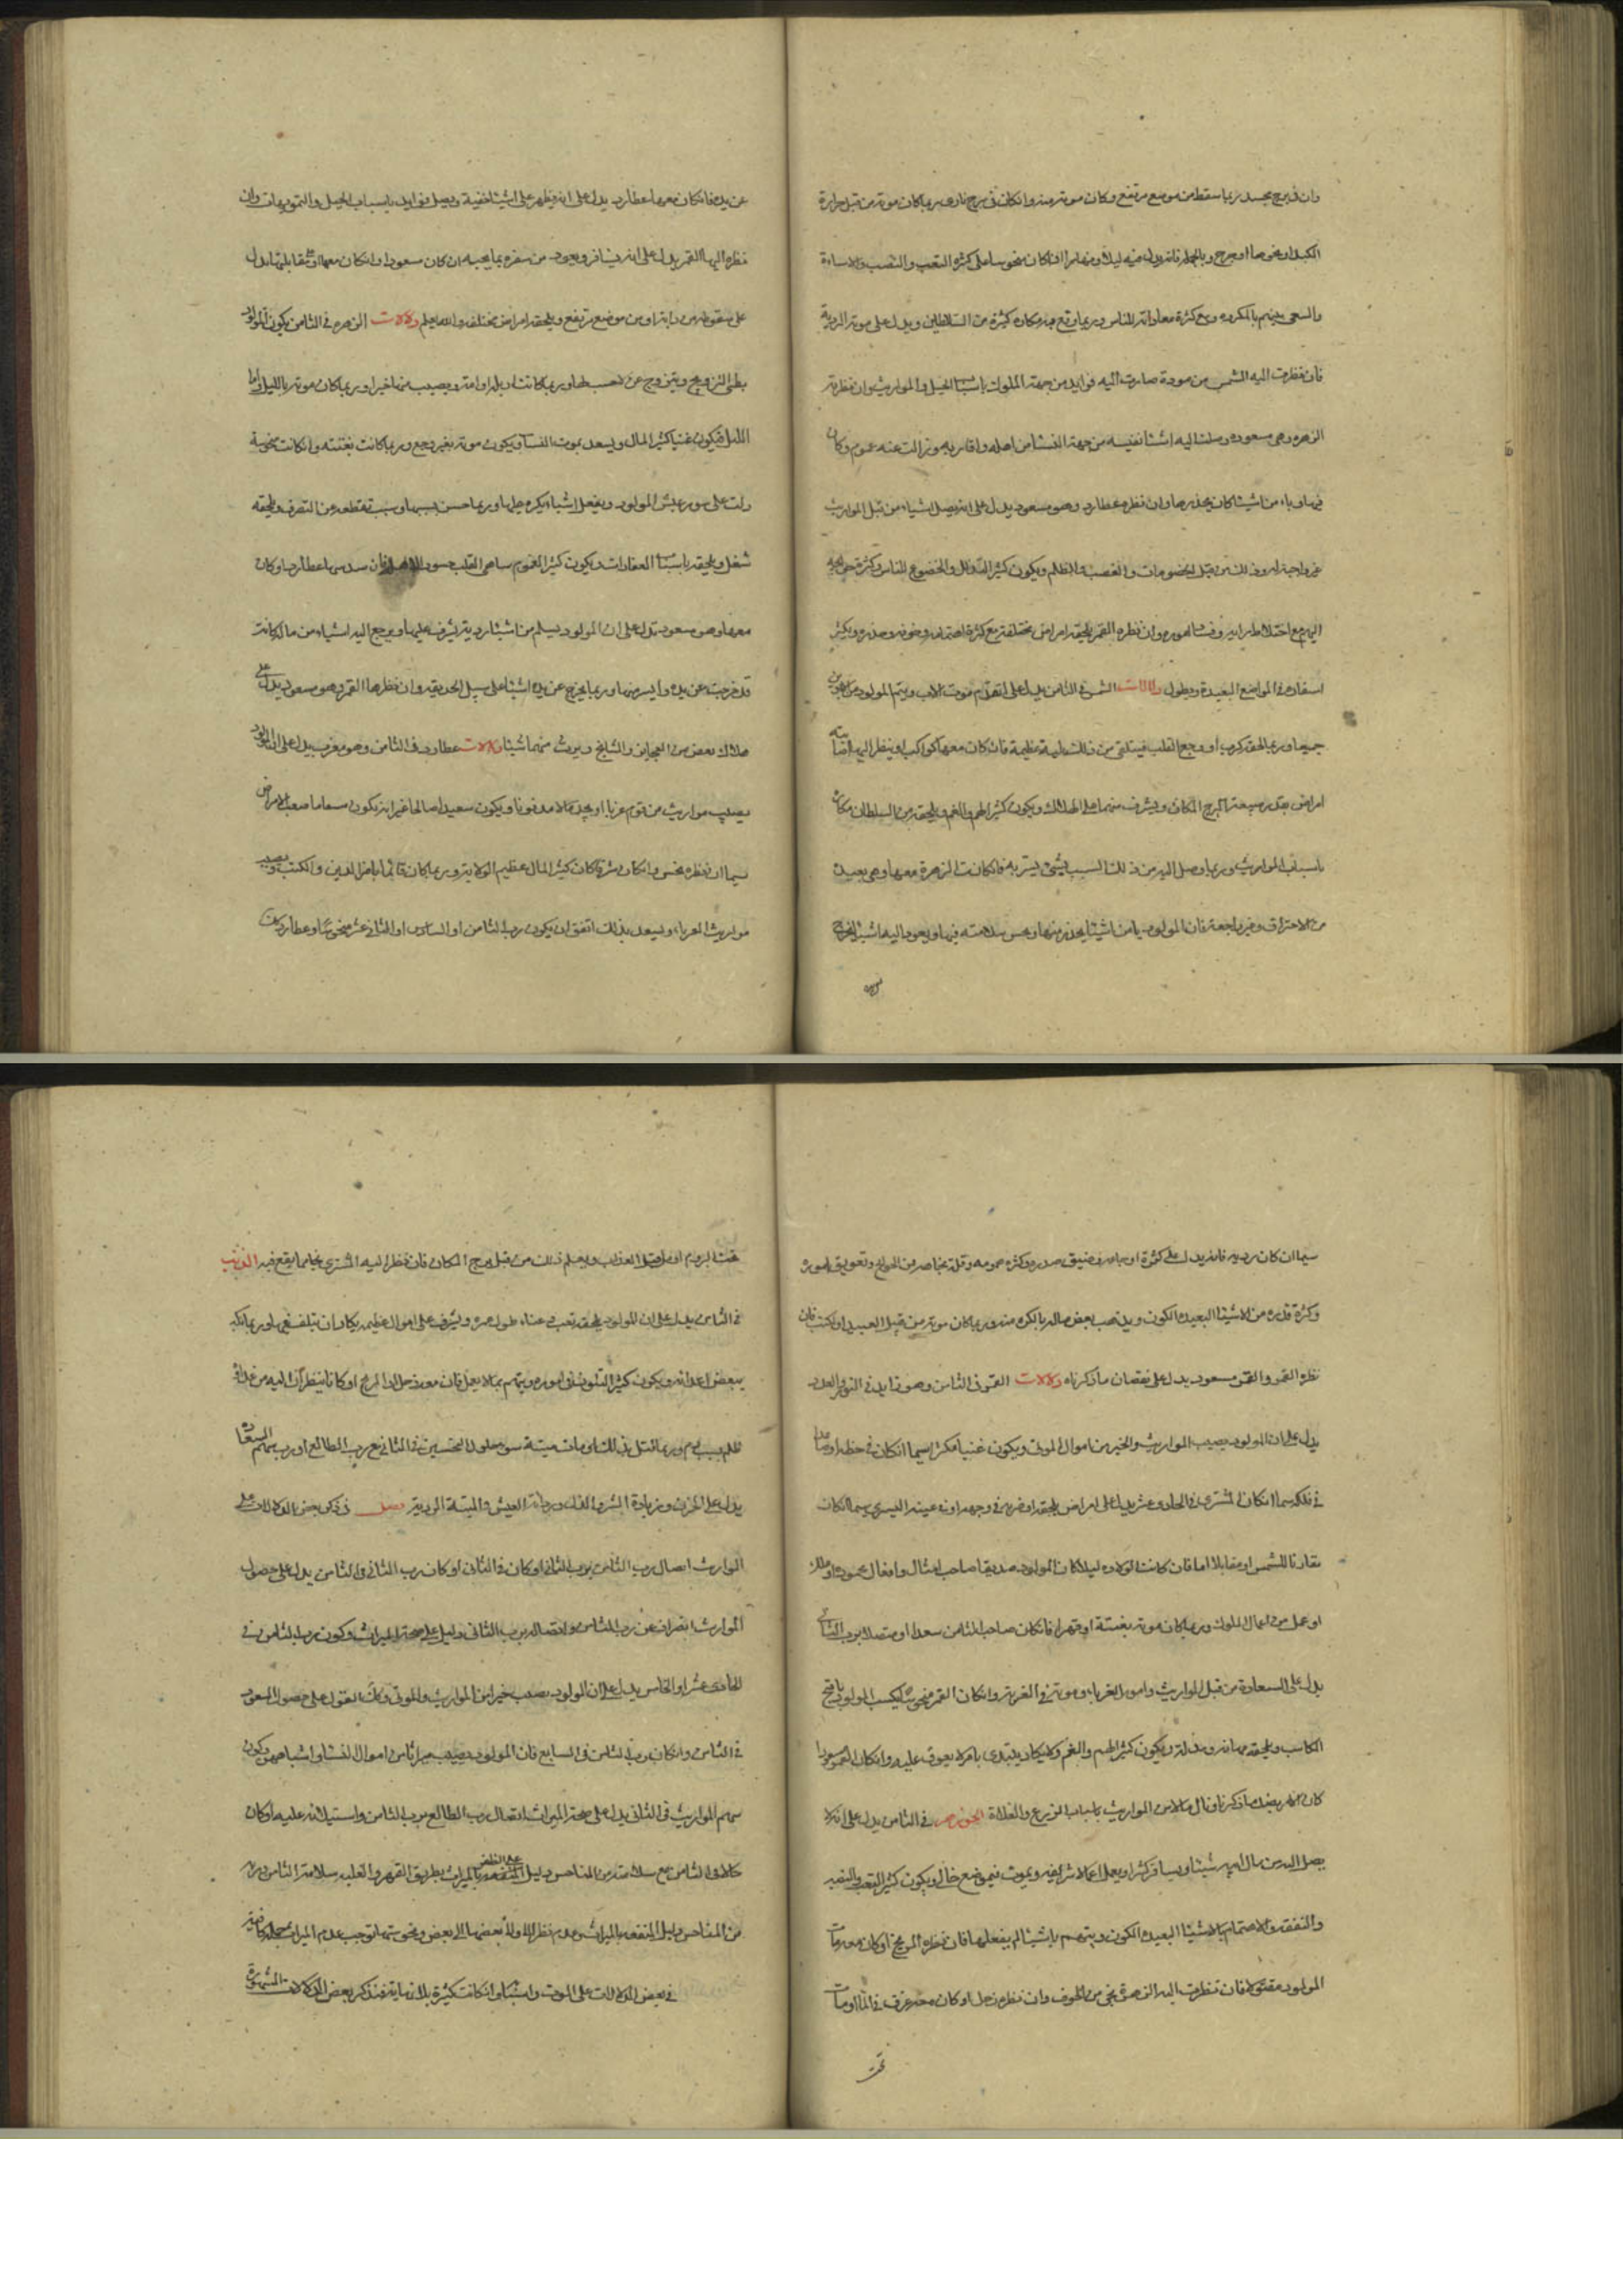 وان فى برج مجسد ربما سقط من موضع مرتفع وكان موته منه وان كان فى برج نارى ربما كان موته من قبل حرارة
الكبد او نحوها او جرح وبالجملة فانه يدل فيه ليلا ونهارا اذا كان منحوسا على كثرة التعب والنصب والاساءة
والسعى بينهم بالمكروه ومع كثرة معاداته للناس وربما وقع به مكاره كثيرة من السلاطين ويدل على موته الردية
فان نظرت اليه الشمس من مودة صارت اليه فوايد من جهة الملوك باسباب الحيل والمواريث وان نظرته
الزهرة وهى مسعوده وصلت اليه اشيا نفيسه من جهة النسا من اصله واقاربه وزالت عنه غموم وكان
فيها وباء من اشيا كان يحذرها وان نظره عطارد وهو مسعود يدل على انه يصل اشياء من قبل المواريث
غير واجبة له وذلك من قبل الخصومات والغصب والظلم ويكون كثير التذلل والخضوع للناس وكثرة
اليهم مع اختلاط رايه وفساد اموره وان نظره القمر يلحقه امراض مختلفة مع كثرة اهتمامه وخوفه وحذره ويكثر
اسفاره فى المواضع البعيدة ويطول دلالات الشمس فى الثامن يدل على تقدم موت الاب ويتم المولود من ابوين
جميعا وربما لحقه كرب او وجع القلب فيلتقى من ذلك بلية عظيمة فان كان معها كواكب او ينظر اليها اصابته
امراض بقدر طبيعة البرج المكان ويشرف منها على الهلاك ويكون كثير الهم والغم ويلحقه من السلطان مكاره
باسباب المواريث وربما وصل اليه من ذلك السبب شىء يسر به فان كانت الزهرة معها وهى بعيدة
من الاحتراق وغير راجعة فان المولود يامن اشيا يحذر منها ويحسن سلامته فيها ويعود اليه اشيا تخرج
عن يده فان كان معها عطارد يدل على انه يظهر على اشيا خفية ويصل فوايد باسباب الحيل والتمويهات وان
نظره اليها القمر يدل على انه يسافر ويعود من سفره بما يحبه ان كان مسعودا وان كان معها او يقابلها يدل
على سقوطه من دابة او من موضع مرتفع ويلحقه امراض مختلفه والله اعلم دلالات الزهره فى الثامن يكون المولود
بطى التزويج ويتزوج عن حسبها وربما كانت ارملة او امة ويصيب منها خيرا وربما كان موته بالليل واما
الليل فيكون غنيا كثير المال ويسعد بموت النسا ويكون موته بغير وجع وربما كانت بغتة وان كانت منحوسة
دلت على سوء عيش المولود ويفعل اشياء يكره عليها وربما حبس بسببها وسبب قطعه عن التصرف ويلحقه
شغل وبليته باسباب العقارات ويكون كثير الغموم ساهى القلب حسود فان سدسها عطارد او كان
معها وهو مسعود تدل على ان المولود يسلم من اشيا ردية يشرف عليها ويرجع اليه اشياء من مال كانت
قد خرجت عن يده وايس منها وربما يخرج عن يده اشيا على سبيل الخديعة وان نظرها القمر وهو مسعود يدل على
هلاك بعض من العجايز والشايخ ويرث منهم اشيا دلالات عطارد فى الثامن وهو مغرب يدل على ان المولود
يصيب مواريث من قوم غربا او يجد مالا مدفونا ويكون سعيدا صالحا غير انه يكون مسقاما صعب الامراض
سيما ان نظره نحس وان كان مشرقا كان كثير المال عظيم الولاية وربما كان قائما بامر الدين والكتب ويصيب
مواريث الغرباء ويسعد بذلك اتفق ان يكون رب الثامن او السادس او الثانى عشر منحوسا وعطارد
سيما ان كان برديه فانه يدل على كثرة اوجاعه وضيق صدره وكثرة همومه وقلة خلاصه من العوايق وتعويق اموره
وكثرة قدره من الاشيا البعيدة الكون ويذهب بعض ماله بالكره منه وربما كان موته من قبل العبيد او الكتب فان
نظره القمر والقمر مسعود يدل على نقصان ما ذكرناه دلالات القمر فى الثامن وهو زايد فى النور والعدد
يدل على ان المولود يصيب المواريث والخير من اموال الموتى ويكون غنيا مكثرا سيما ان كان فى حظه او صاعدا
فى فلكه سيما ان كان المشترى فى الحادى عشر يدل على امراض يلحقه او ضربة فى وجهه او فى عينه اليسرى سيما ان كان
مقارنا للشمس او مقابلا لها فان كانت الولاده ليلا كان المولود صديقا صاحب امثال وافعال محمودة
او عمل من اعمال الملوك وربما كان موته بغتة او قهرا فان كان صاحب الثامن سعدا او متصلا برب الثانى
يدل على السعادة من قبل المواريث وامور الغرباء وموته فى الغربة وان كان القمر منحوسا يكسب المولود باقبح
المكاسب ويلحقه مهانه ومذلة ويكون كثير الهم والغم ولا يكاد يبتدى بامر الا يعوق عليه وان كان القمر مسعودا
كان الامر بضد ما ذكرنا ونال مالا من المواريث باسباب الزرع والغلاة الجوزهر فى الثامن يدل على انه لا
يصل اليه من مال ابيه شيئا ويسافر كثيرا ويعمل اعمالا شريفه ويموت فى موضع خال ويكون كثير التعب والنصب
والنفقة والاهتمام بالاشيا البعيدة الكون ويتهم باشيا لم يفعلها فان نظره المريخ او كان معه مات
المولود مقتولا فان نظرت اليه الزهرة نجى من الخوف وان نظره زحل او كان معه غرق فى الماء او مات
تحت الردم او يلحقه العذاب ويعلم ذلك من قبل برج المكان فان نظر اليه المشترى نجا مما يقع فيه الذنب
فى الثامن يدل على ان المولود يلحقه تعب وعناء طول عمره ويشرف على اموال عظيمه يكاد ان تتلف فيها وربما نكبه
ببعض اعدائه ويكون كثير التلون فى اموره ويتهم بما لا يعمل فان معه زحل او المريخ او كانا ينظران اليه من عداوة
ظلم بسبب دم وربما قتل بذلك او مات ميتة سوء حلول النحسين فى الثانى مع رب الطالع او رب سهم السعادة
يدل على الحزن وزيادة الشر والفاقة ورداءة العيش والميتة الردية فصل فى ذكر بعض الدلالات على
المواريث اتصال رب الثامن برب الثانى او كان فى الثانى او كان رب الثانى فى الثامن يدل على حصول
المواريث انصراف عن رب الثامن واتصاله برب الثانى دليل على صحة الميراث وكون رب الثامن فى
الحادى عشر او الخامس يدل على ان المولود يصيب خيرا من المواريث والموتى وكان القول على حصول السعود
فى الثامن وان كان رب الثامن فى السابع فان المولود يصيب ميراثا من اموال النسا واشباههن وكون
سهم المواريث فى الثانى يدل على صحة الميراث اتصال رب الطالع برب الثامن واستيلائه عليه او كان
حالا فى الثامن مع سلامته من المناحس دليل على الظفر بالميراث بطريق القهر والغلبه سلامة الثامن وربه
من المناحس دليل المنفعه بالميراث وعدم نظر الادلة بعضها الى بعض ونحوستها توجب عدم الميراث
فى بعض الدلالات على الموت واسبابه وان كانت كثيرة بلا نهاية فنذكر بعض الدلالات المشهورة